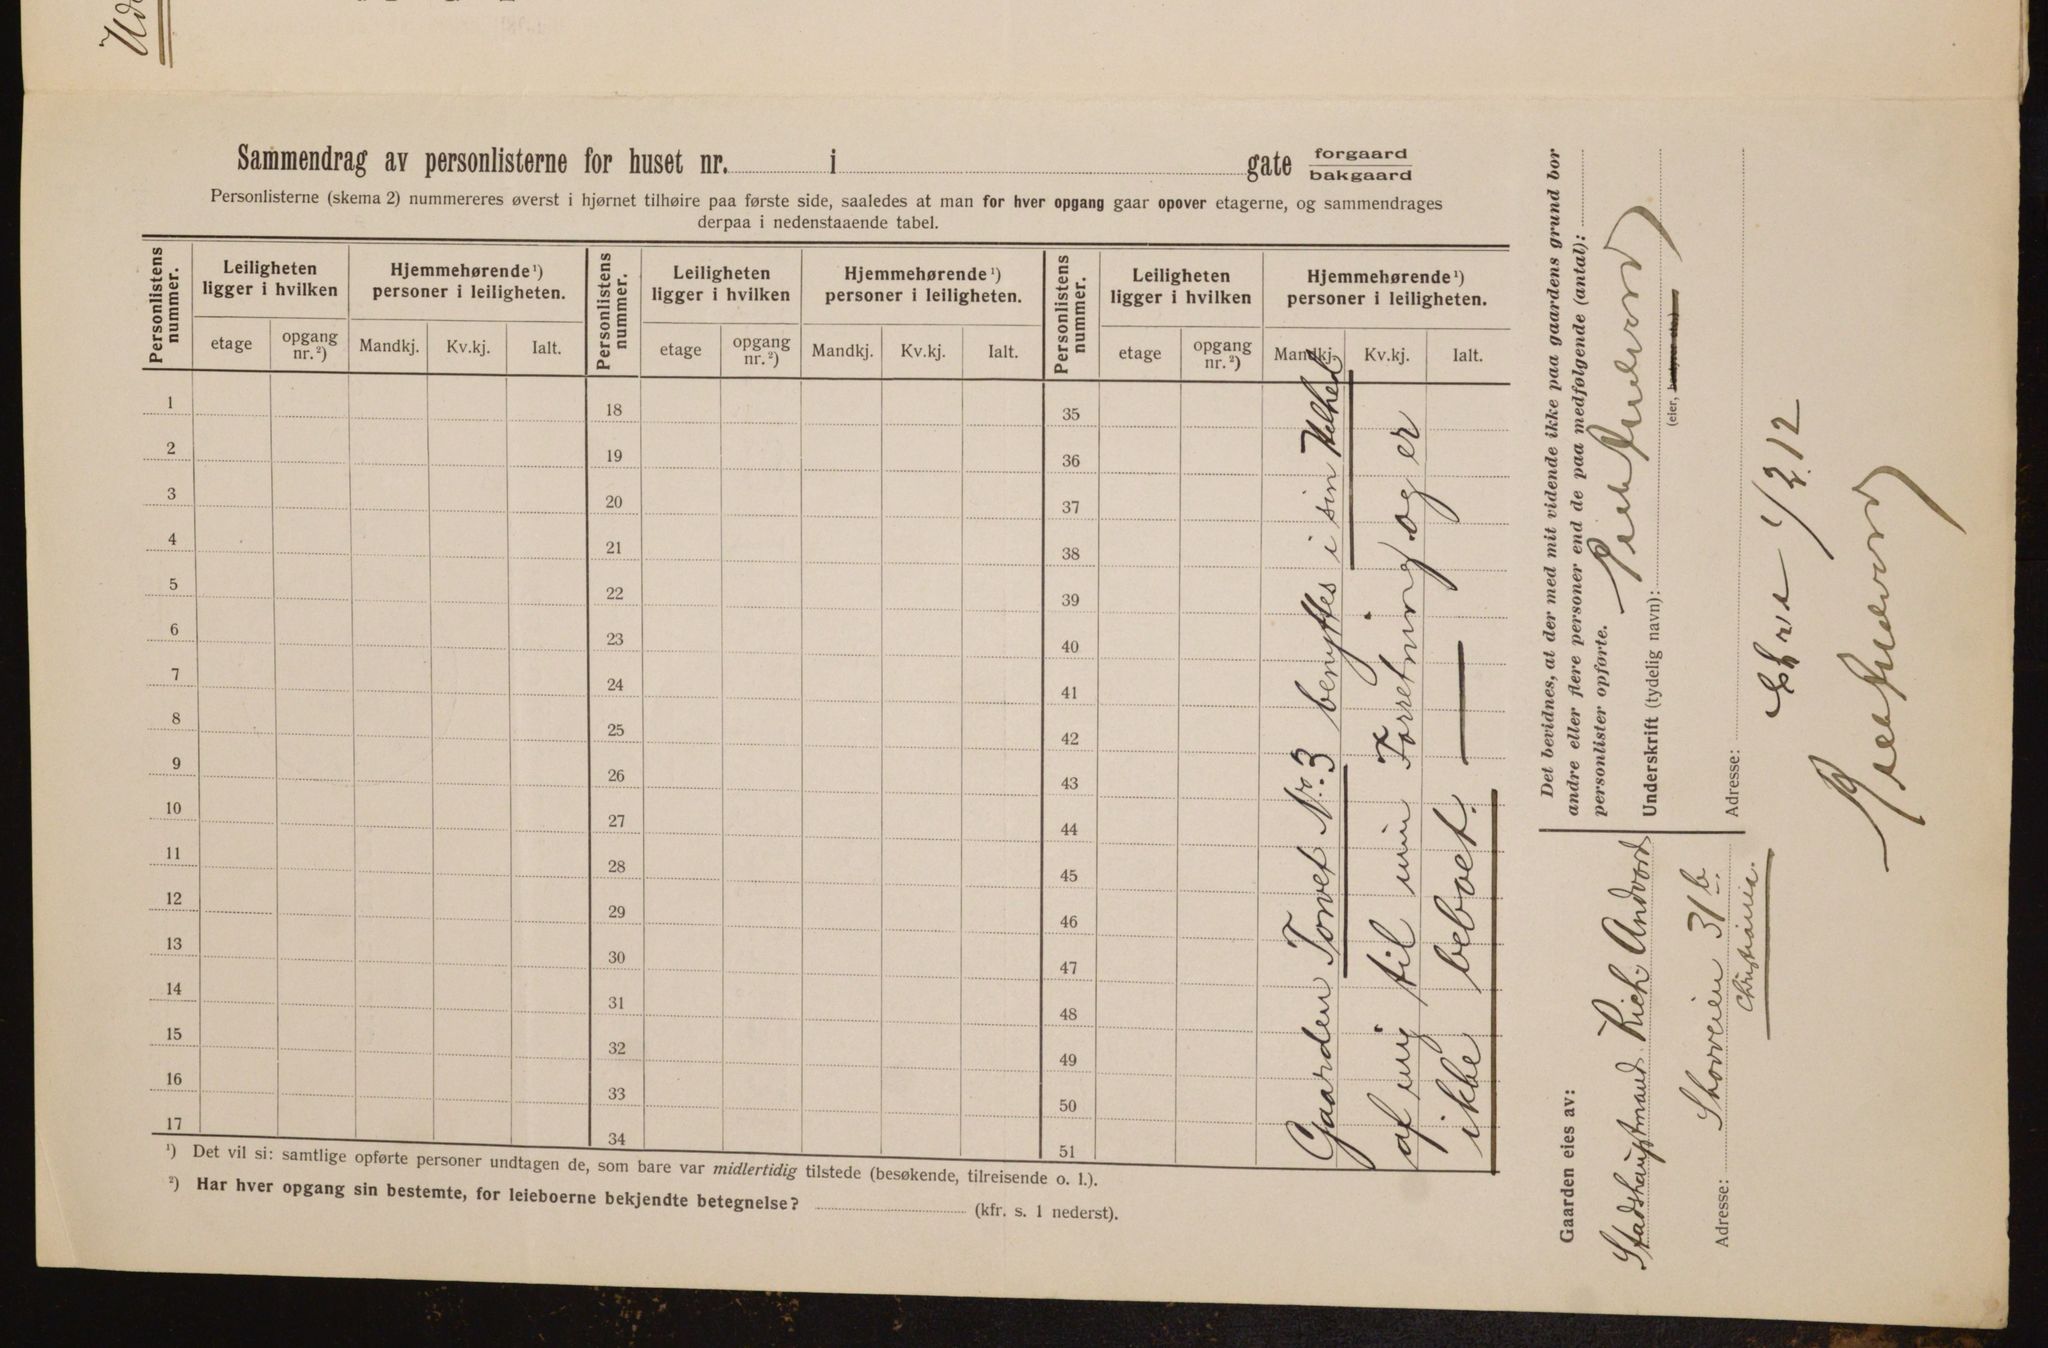 Sammendrag av personlisterne for huset nr. i gate forgaard
bakgaard
Personlisterne (skema 2) nummereres øverst i hjørnet tilhøire paa første side, saaledes at man for hver opgang gaar opover etagerne, og sammendrages
derpaa i nedenstaaende tabel.
Personlistens nummer. Leiligheten ligger i hvilken Hjemmehørende¹) personer i leiligheten. Personlistens nummer. Leiligheten ligger i hvilken Hjemmehørende¹) personer i leiligheten. Personlistens nummer. Leiligheten ligger i hvilken Hjemmehørende¹) personer i leiligheten.
etage opgang nr.²) Mandkj. Kv.kj. Ialt. etage opgang nr.²) Mandkj. Kv.kj. Ialt. etage opgang nr.²) Mandkj. Kv.kj. Ialt.
1 18 35
2 19 36
3 20 37
4 21 38
5 22 39
6 23 40
7 24 41
8 25 42
9 26 43
10 27 44
11 28 45
12 29 46
13 30 47
14 31 48
15 32 49
16 33 50
17 34 51
Gaarden Torvet Nr. 3 benyttes i sin Helhed
af mig til min Forretning og er
ikke beboet.
¹) Det vil si: samtlige opførte personer undtagen de, som bare var midlertidig tilstede (besøkende, tilreisende o. l.).
²) Har hver opgang sin bestemte, for leieboerne bekjendte betegnelse? (kfr. s. 1 nederst).
Gaarden eies av:
Stadshauptmand Rich. Andvord
Adresse: Skovveien 31 b.
Christiania.
Det bevidnes, at der med mit vidende ikke paa gaardens grund bor
andre eller flere personer end de paa medfølgende (antal):
personlister opførte.
Underskrift (tydelig navn): Rich Andvord
(eier, bestyrer etc.)
Adresse:
Chra 1/2 12
Rich Andvord